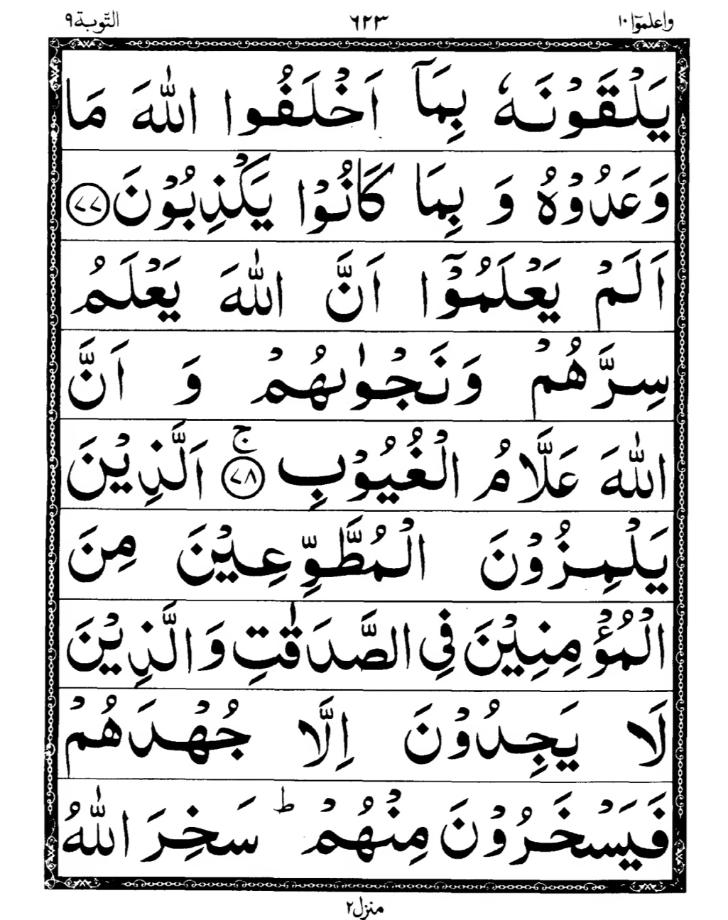 واعلموٓا ١٠ ٦٢٣ التوبة ٩
يَلْقَوْنَهٗ بِمَآ اَخْلَفُوا اللّٰهَ مَا
وَعَدُوْهُ وَ بِمَا كَانُوْا يَكْذِبُوْنَ ﴿٧٧﴾
اَلَمْ يَعْلَمُوْٓا اَنَّ اللّٰهَ يَعْلَمُ
سِرَّهُمْ وَنَجْوٰىهُمْ وَ اَنَّ
اللّٰهَ عَلَّامُ الْغُيُوْبِ ﴿٧٨﴾ۚ اَلَّذِيْنَ
يَلْمِزُوْنَ الْمُطَّوِّعِيْنَ مِنَ
الْمُؤْمِنِيْنَ فِي الصَّدَقٰتِ وَالَّذِيْنَ
لَا يَجِدُوْنَ اِلَّا جُهْدَهُمْ
فَيَسْخَرُوْنَ مِنْهُمْ ؕ سَخِرَ اللّٰهُ
منزل ٢